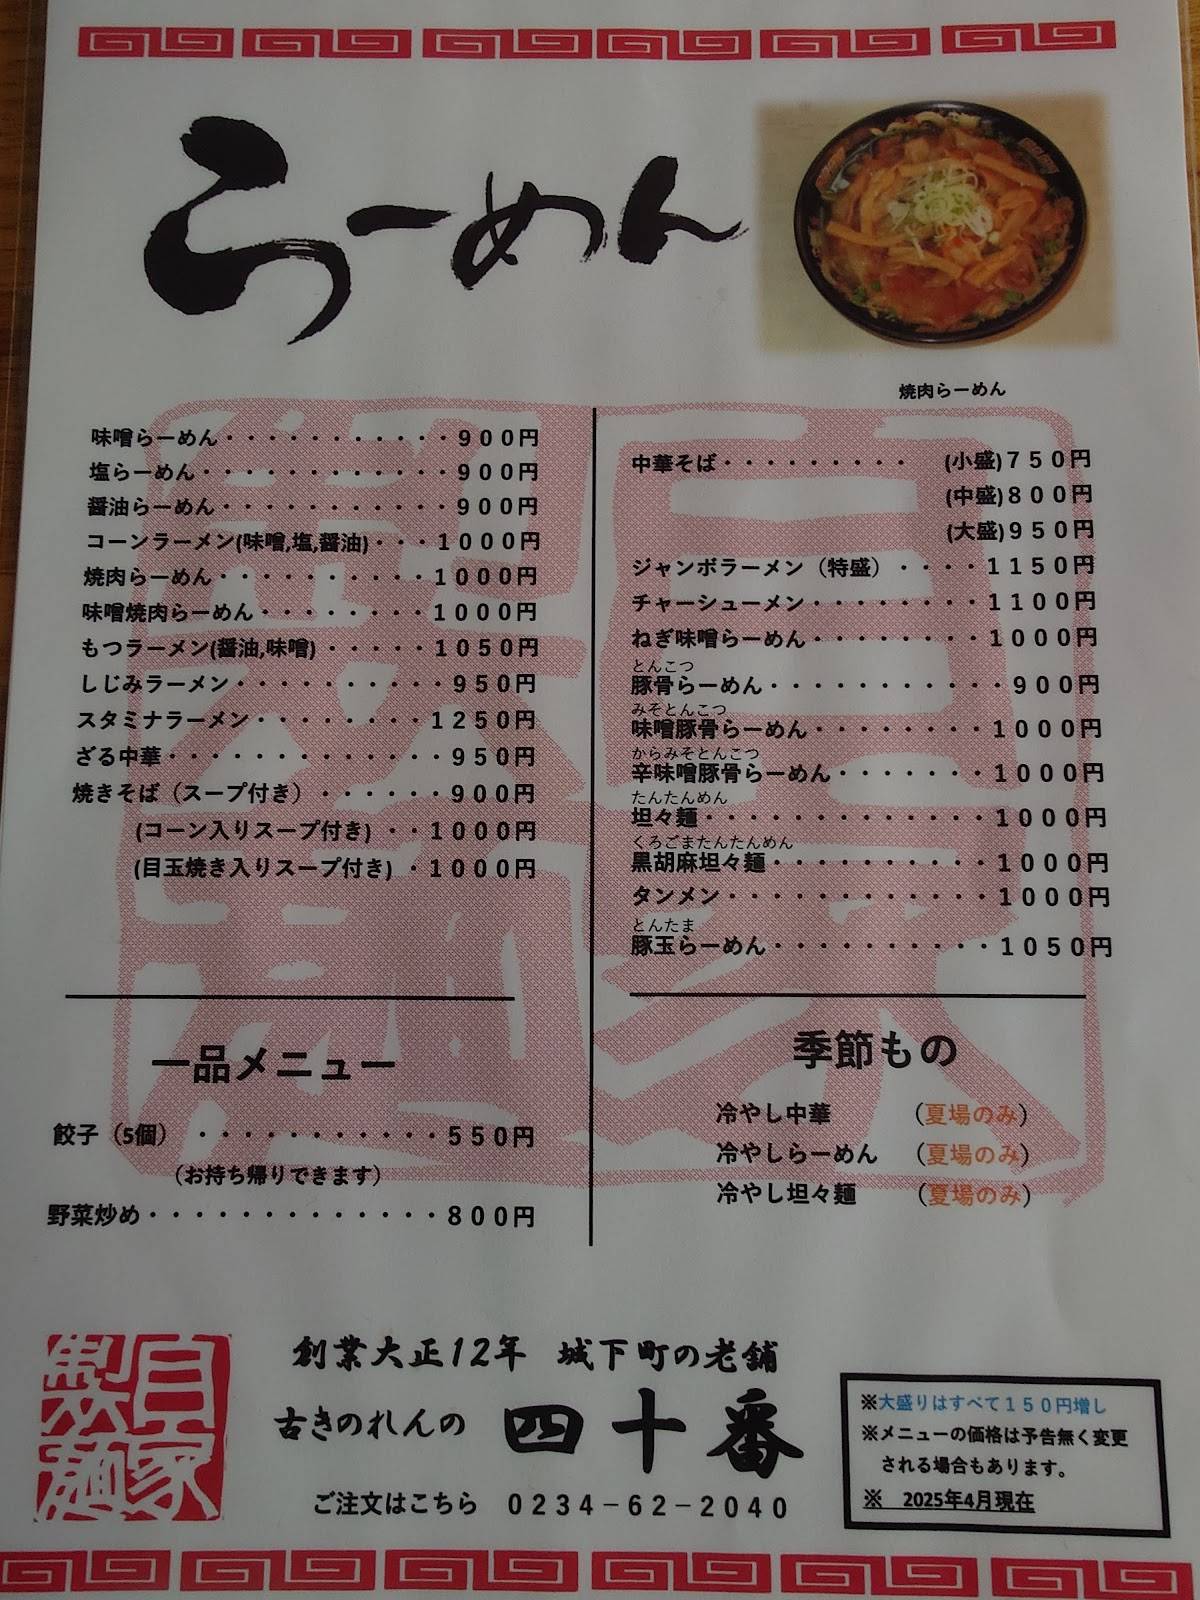 らーめん
焼肉らーめん
味噌らーめん・・・・・・・・・・・900円
塩らーめん・・・・・・・・・・・・900円
醤油らーめん・・・・・・・・・・・900円
コーンラーメン(味噌,塩,醤油)・・・1000円
焼肉らーめん・・・・・・・・・・1000円
味噌焼肉らーめん・・・・・・・・1000円
もつラーメン(醤油,味噌)・・・・・1050円
しじみラーメン・・・・・・・・・・950円
スタミナラーメン・・・・・・・・1250円
ざる中華・・・・・・・・・・・・・950円
焼きそば（スープ付き）・・・・・・900円
(コーン入りスープ付き)・・1000円
(目玉焼き入りスープ付き)・1000円
中華そば・・・・・・・・・ (小盛)750円
(中盛)800円
(大盛)950円
ジャンボラーメン（特盛）・・・・1150円
チャーシューメン・・・・・・・・1100円
ねぎ味噌らーめん・・・・・・・・1000円
とんこつ
豚骨らーめん・・・・・・・・・・・900円
みそとんこつ
味噌豚骨らーめん・・・・・・・・1000円
からみそとんこつ
辛味噌豚骨らーめん・・・・・・・1000円
たんたんめん
坦々麺・・・・・・・・・・・・・1000円
くろごまたんたんめん
黒胡麻坦々麺・・・・・・・・・・1000円
タンメン・・・・・・・・・・・・1000円
とんたま
豚玉らーめん・・・・・・・・・・1050円
一品メニュー
餃子（5個）・・・・・・・・・・・550円
（お持ち帰りできます）
野菜炒め・・・・・・・・・・・・・800円
季節もの
冷やし中華 （夏場のみ）
冷やしらーめん （夏場のみ）
冷やし坦々麺 （夏場のみ）
自家製麺
創業大正12年 城下町の老舗
古きのれんの 四十番
ご注文はこちら 0234－62－2040
※大盛りはすべて150円増し
※メニューの価格は予告無く変更
される場合もあります。
※ 2025年4月現在